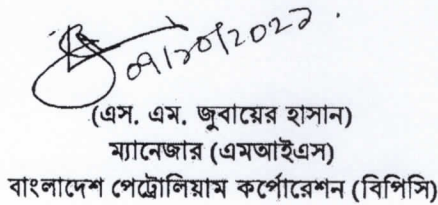 (এস. এম. জুবায়ের হাসান)
ম্যানেজার (এমআইএস)
বাংলাদেশ পেট্রোলিয়াম কর্পোরেশন (বিপিসি)